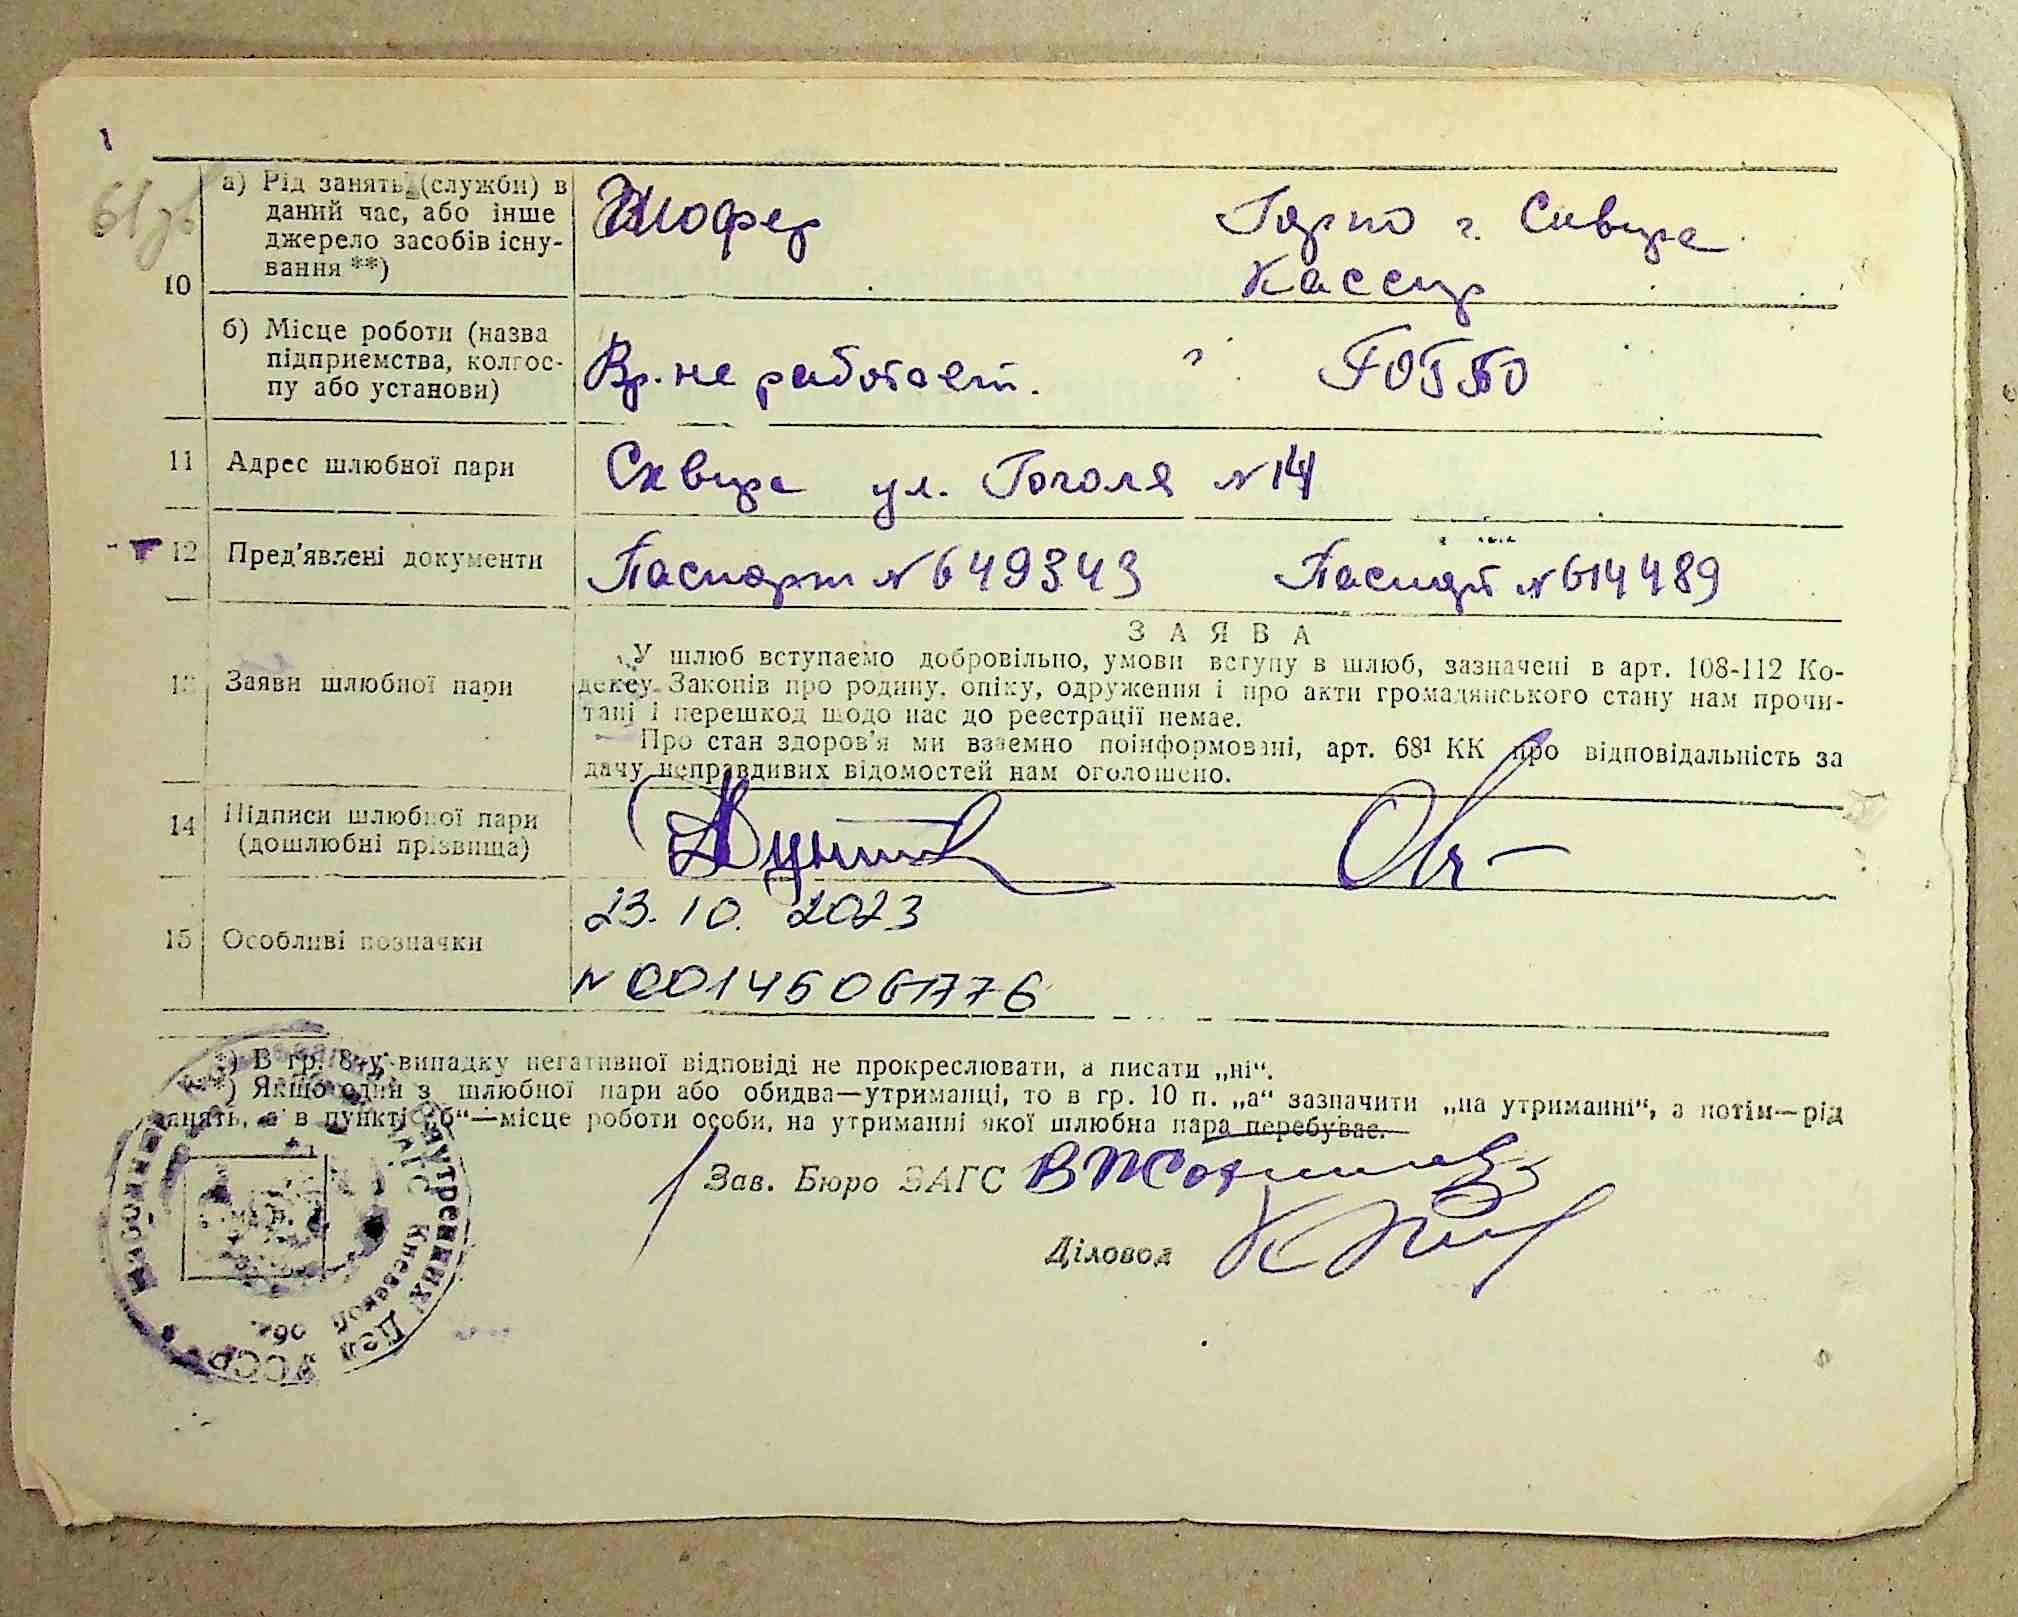 61 зв
10
а) Рід занять (служби) в
даний час, або інше
джерело засобів існу-
вання **)
Шофер
Горпо г. Сквира
Кассир
б) Місце роботи (назва
підприємства, колгос-
пу або установи)
Вр. не работает.
11 Адрес шлюбної пари
Сквира ул. Гоголя №14
12 Пред'явлені документи
Паспорт №649343 Паспорт №614489
13 Заяви шлюбної пари
ЗАЯВА
У шлюб вступаємо добровільно, умови вступу в шлюб, зазначені в арт. 108-112 Ко-
дексу Законів про родину, опіку, одруження і про акти громадянського стану нам прочи-
тані і перешкод щодо нас до реєстрації немає.
Про стан здоров'я ми взаємно поінформовані, арт. 68¹ КК про відповідальність за
дачу неправдивих відомостей нам оголошено.
14 Підписи шлюбної пари
(дошлюбні прізвища)
15 Особливі позначки
23.10.2023
№00145061776
*) В гр. 8 у випадку негативної відповіді не прокреслювати, а писати „ні“.
**) Якщо один з шлюбної пари або обидва—утриманці, то в гр. 10 п. „а“ зазначити „на утриманні“, а потім—рід
занять, а в пункті „б“—місце роботи особи, на утриманні якої шлюбна пара перебуває.
Зав. Бюро ЗАГС
Діловод
внутренних Дел УССР
ЗАГС Киевской обл.